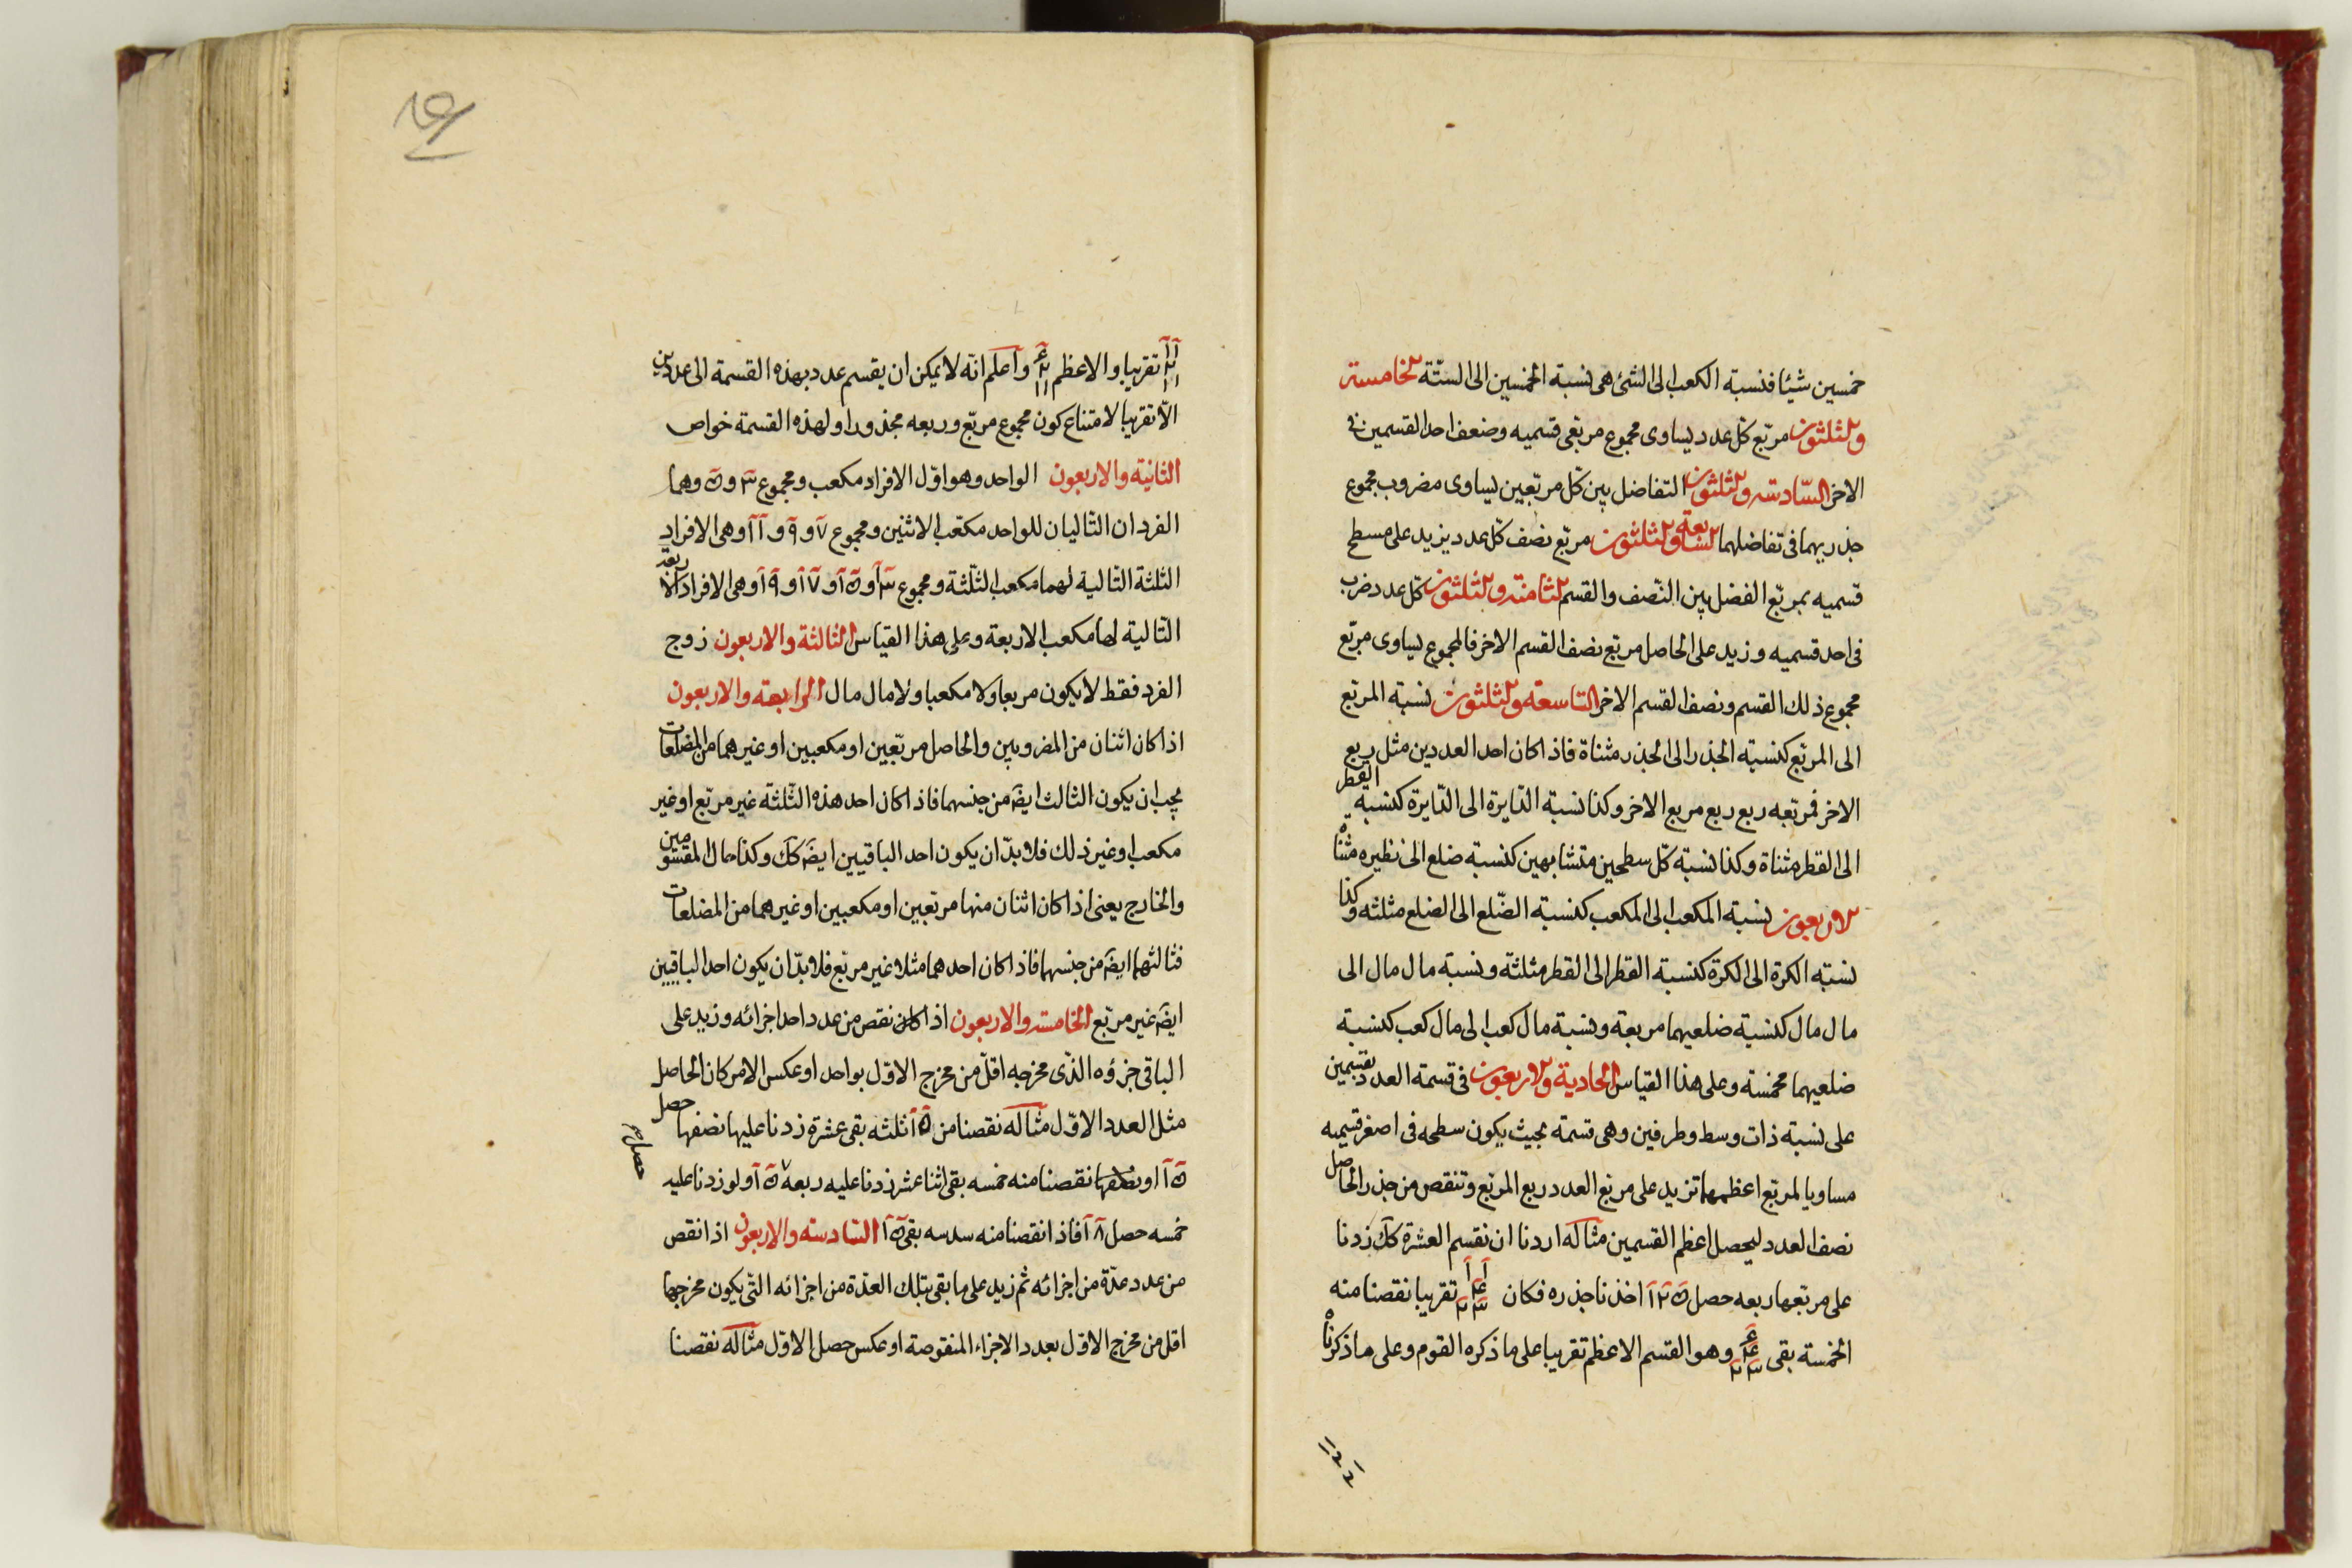 خمسين شيئا فنسبة الكعب الى الشئ هى نسبة الخمسين الى الستّة الخامسة
والثلثون مربّع كل عدد يساوى مجموع مربّعى قسميه وضعف احد القسمين فى
الاخر السّادسة والثلثون التفاضل بين كلّ مربّعين يساوى مضروب مجموع
جذريهما فى تفاضلهما السابعة والثلثون مربّع نصف كلّ عدد يزيد على مسطح
قسميه بمربّع الفضل بين النّصف والقسم الثامنة والثلثون كلّ عدد ضرب
فى احد قسميه وزيد على الحاصل مربّع نصف القسم الاخر فالمجموع يساوى مربّع
مجموع ذلك القسم ونصف القسم الاخر التاسعة والثلثون نسبة المربّع
الى المربّع كنسبة الجذر الى الجذر مثناة فاذا كان احد العددين مثل ربع
الاخر فمربّعه ربع ربع مربع الاخر وكذا نسبة الدّايرة الى الدّايرة كنسبة القطر
الى القطر مثناة وكذا نسبة كلّ سطحين متشابهين كنسبة ضلع الى نظيره مثناة
الاربعون نسبة المكعب الى المكعب كنسبة الضّلع الى الضلع مثلثه وكذا
نسبة الكرة الى الكرة كنسبة القطر الى القطر مثلثة ونسبة مال مال الى
مال مال كنسبة ضلعيهما مربعة ونسبة مال كعب الى مال كعب كنسبة
ضلعيهما مخمسة وعلى هذا القياس الحادية والاربعون فى قسمة العدد بقسمين
على نسبة ذات وسط وطرفين وهى قسمة بحيث يكون سطحه فى اصغر قسميه
مساويا لمربّع اعظمهما تزيد على مربّع العدد ربع المربّع وتنقص من جذر الحاصل
نصف العدد ليحصل اعظم القسمين مثاله اردنا ان نقسم العشرة كك زدنا
على مربّعها ربعه حصل ١٢٥ اخذنا جذره فكان تقريبا نقصنا منه
الخمسة بقى وهو القسم الاعظم تقريبا على ما ذكره القوم وعلى ما ذكرناه
تقريبا والاعظم واعلم انّه لا يمكن ان يقسم عدد بهذه القسمة الى عددين
الّا تقريبا لامتناع كون مجموع مربّع وربعه مجذورا ولهذه القسمة خواص
الثانية والاربعون الواحد وهو اوّل الافراد مكعب ومجموع ٣ و ٥ وهما
الفردان التّاليان للواحد مكعّب الاثنين ومجموع ٧ و ٩ و ١١ وهى الافراد
الثلثة التّالية لهما مكعب الثّلثة ومجموع ١٣ و ١٥ و ١٧ و ١٩ وهى الافراد الاربعة
التّالية لها مكعب الاربعة وعلى هذا القياس الثالثة والاربعون زوج
الفرد فقط لا يكون مربعا ولا مكعبا ولا مال مال الرابعة والاربعون
اذا كان اثنان من المضروبين والحاصل مربّعين او مكعبين او غيرهما من المضلعات
يجب ان يكون الثالث ايضَ من جنسهما فاذا كان احد هذه الثّلثة غير مربّع او غير
مكعب او غير ذلك فلا بدّ ان يكون احد الباقيين ايضَ كك وكذا حال المقسومين
والخارج يعنى اذا كان اثنان منها مربّعين او مكعبين او غيرهما من المضلعات
فثالثهما ايضَ من جنسهما فاذا كان احدهما مثلا غير مربّع فلا بدّ ان يكون احد الباقيين
ايضَ غير مربّع الخامسة والاربعون اذا كان نقص من عدد احد اجزائه وزيد على
الباقى جزؤه الّذى مخرجه اقلّ من مخرج الاوّل بواحد او عكس الامر كان الحاصل
مثل العدد الاوّل مثاله نقصنا من ١٥ ثلثه بقى عشرة زدنا عليها نصفها حصل
١٥ او نقصنا منه خمسه بقى اثنا عشر زدنا عليه ربعه ١٥ ولو زدنا عليه
خمسه حصل ١٨ فاذا نقصنا منه سدسه بقى ١٥ السّادسة والاربعون اذا نقص
من عدد عدّة من اجزائه ثم زيد على ما بقى بتلك العدّة من اجزائه الّتى يكون مخرجها
اقل من مخرج الاوّل بعدد الاجزاء المنقوصة او عكس حصل الاوّل مثاله نقصنا